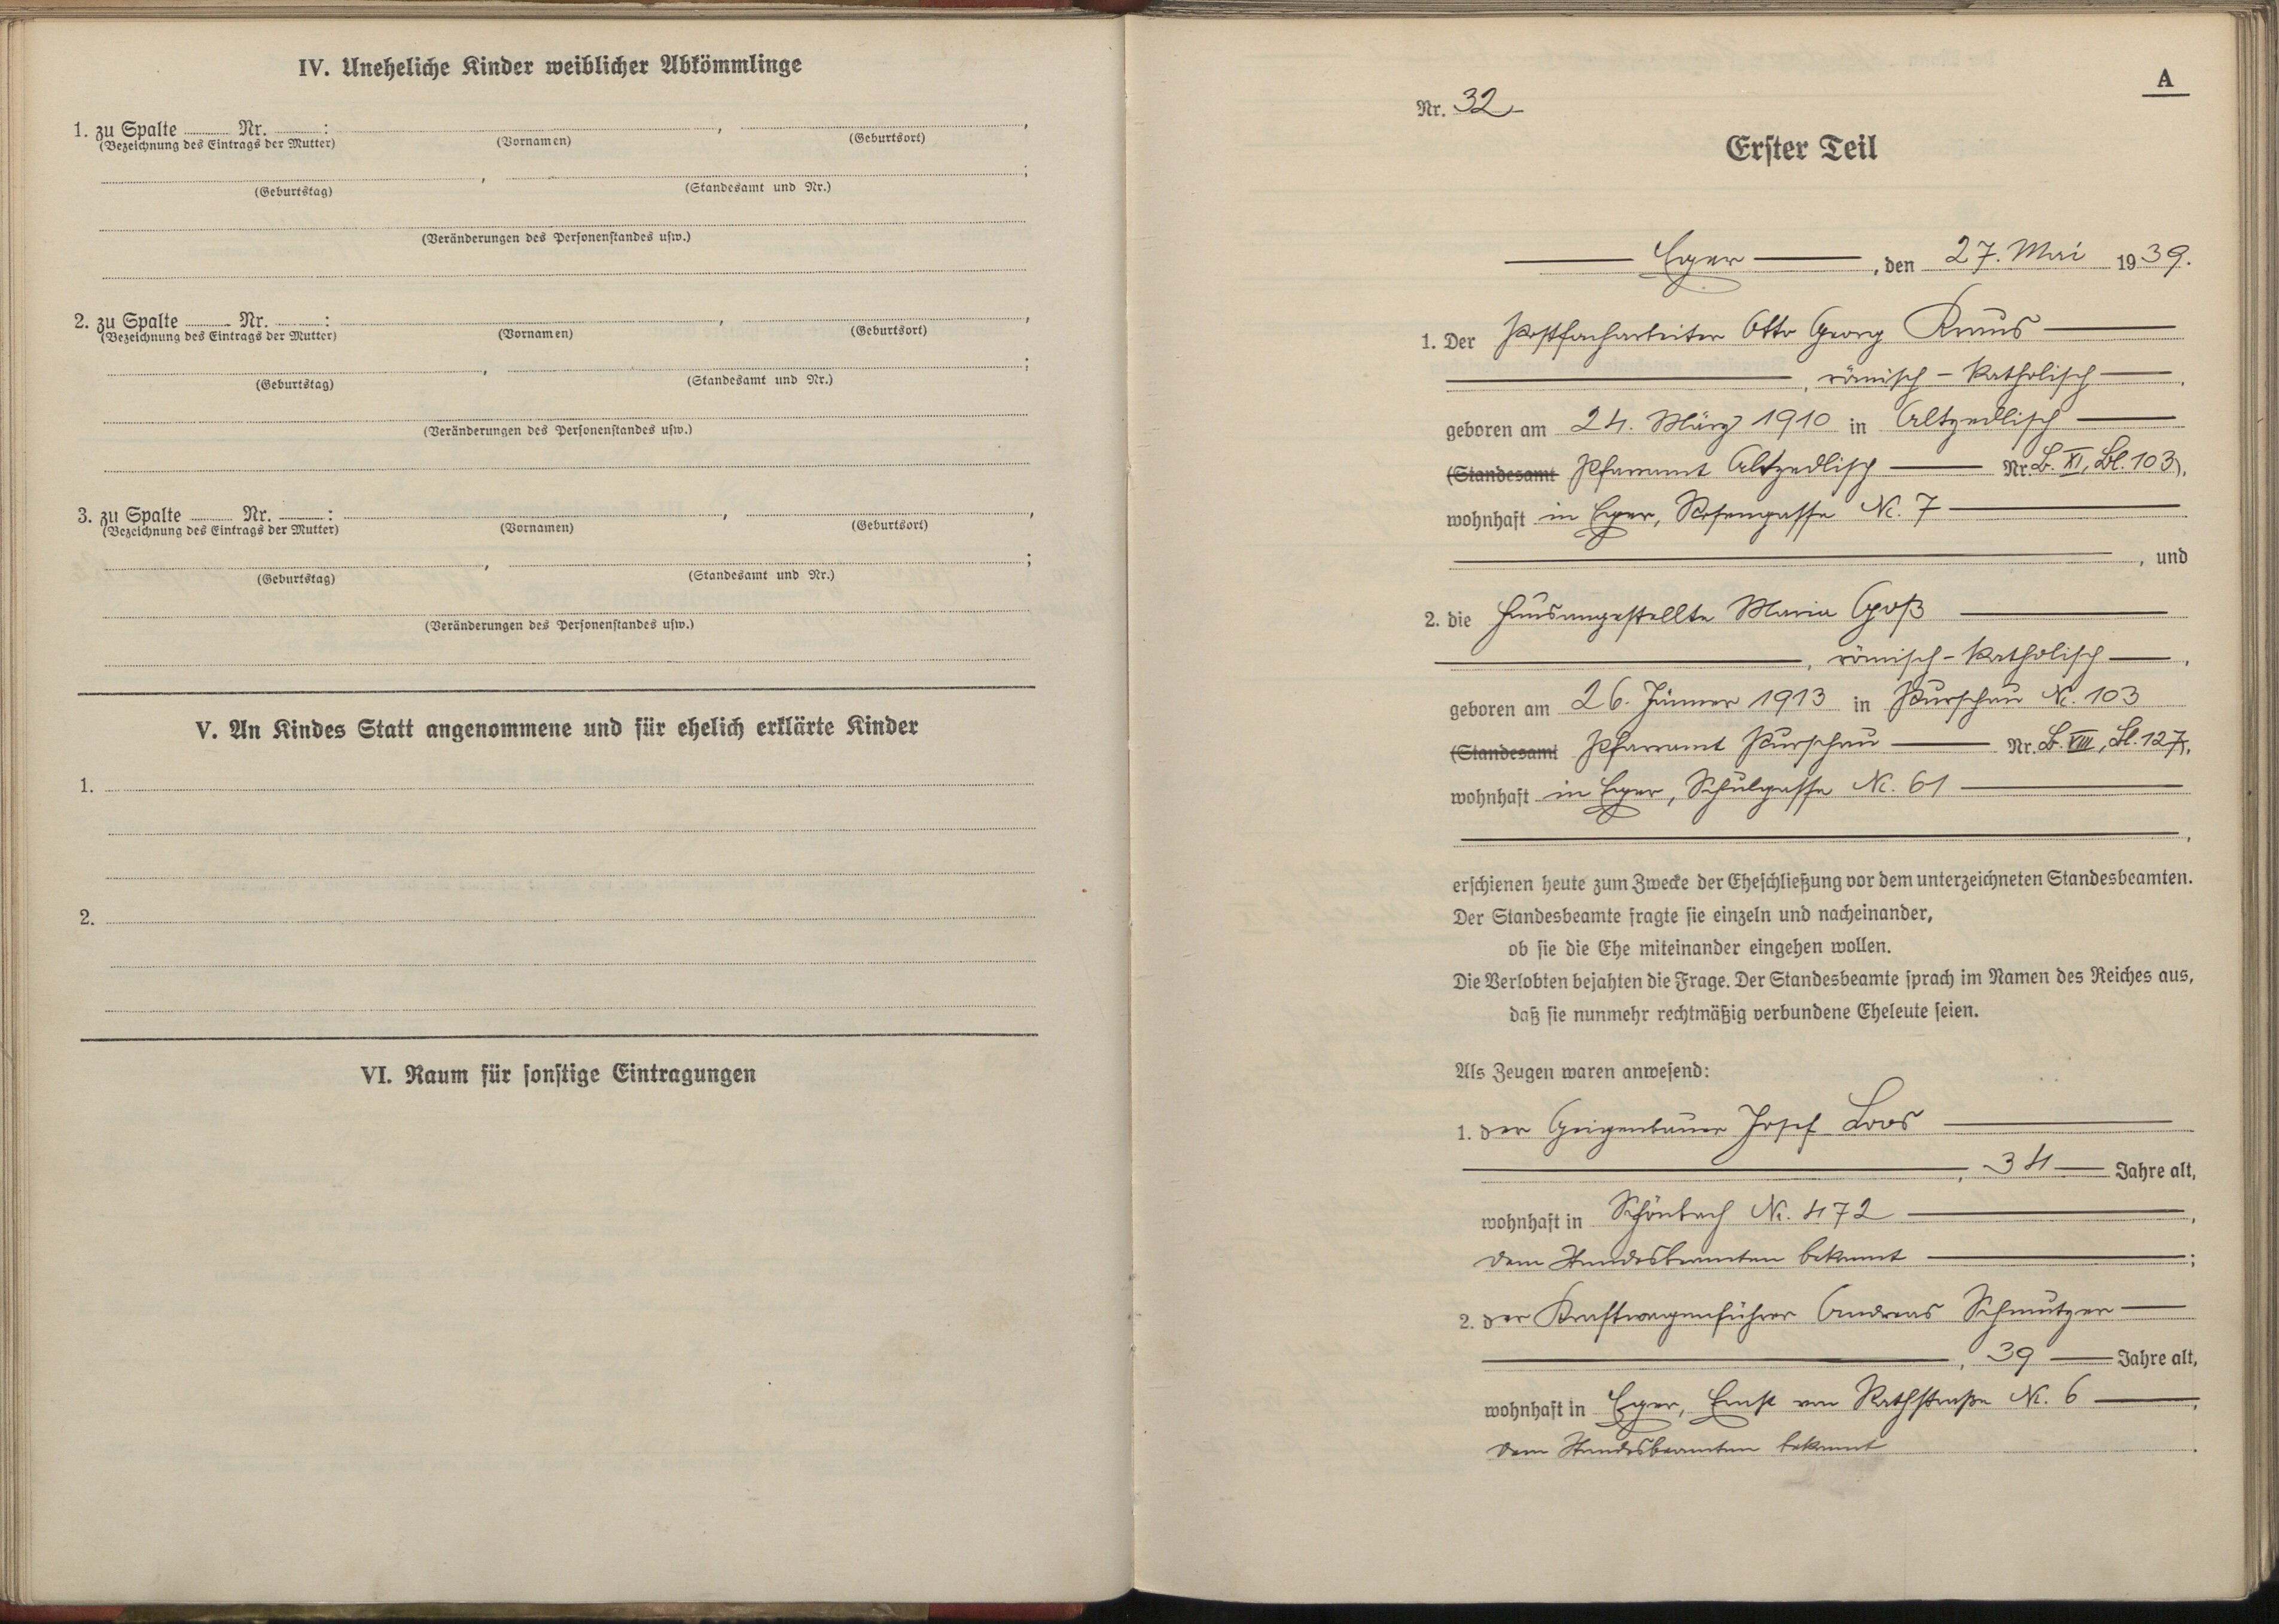 IV. Uneheliche Kinder weiblicher Abkömmlinge
1. zu Spalte ........ Nr. ........: ........, ........,
(Bezeichnung des Eintrags der Mutter) (Vornamen) (Geburtsort)
........, ........;
(Geburtstag) (Standesamt und Nr.)
(Veränderungen des Personenstandes usw.)
2. zu Spalte ........ Nr. ........: ........, ........,
(Bezeichnung des Eintrags der Mutter) (Vornamen) (Geburtsort)
........, ........;
(Geburtstag) (Standesamt und Nr.)
(Veränderungen des Personenstandes usw.)
3. zu Spalte ........ Nr. ........: ........, ........,
(Bezeichnung des Eintrags der Mutter) (Vornamen) (Geburtsort)
........, ........;
(Geburtstag) (Standesamt und Nr.)
(Veränderungen des Personenstandes usw.)
V. An Kindes Statt angenommene und für ehelich erklärte Kinder
1.
2.
VI. Raum für sonstige Eintragungen
A
Nr. 32
Erster Teil
Eger, den 27. Mai 1939.
1. Der Postfacharbeiter Otto Georg Kraus
, römisch-katholisch,
geboren am 24. März 1910 in Altzedlisch
(Standesamt Pfarramt Altzedlisch Nr. B. XI, Bl. 103),
wohnhaft in Eger, Rosengasse Nr. 7
, und
2. die Hausangestellte Maria Groß
, römisch-katholisch,
geboren am 26. Jänner 1913 in Purschau Nr. 103
(Standesamt Pfarramt Purschau Nr. B. VIII, Bl. 127),
wohnhaft in Eger, Schulgasse Nr. 61
,
erschienen heute zum Zwecke der Eheschließung vor dem unterzeichneten Standesbeamten.
Der Standesbeamte fragte sie einzeln und nacheinander,
ob sie die Ehe miteinander eingehen wollen.
Die Verlobten bejahten die Frage. Der Standesbeamte sprach im Namen des Reiches aus,
daß sie nunmehr rechtmäßig verbundene Eheleute seien.
Als Zeugen waren anwesend:
1. der Geigenbauer Josef Loos
, 34 Jahre alt,
wohnhaft in Schönbach Nr. 472,
dem Standesbeamten bekannt;
2. der Kraftwagenführer Andreas Schmutzer
, 39 Jahre alt,
wohnhaft in Eger, Ernst von Rathstraße Nr. 6,
dem Standesbeamten bekannt.